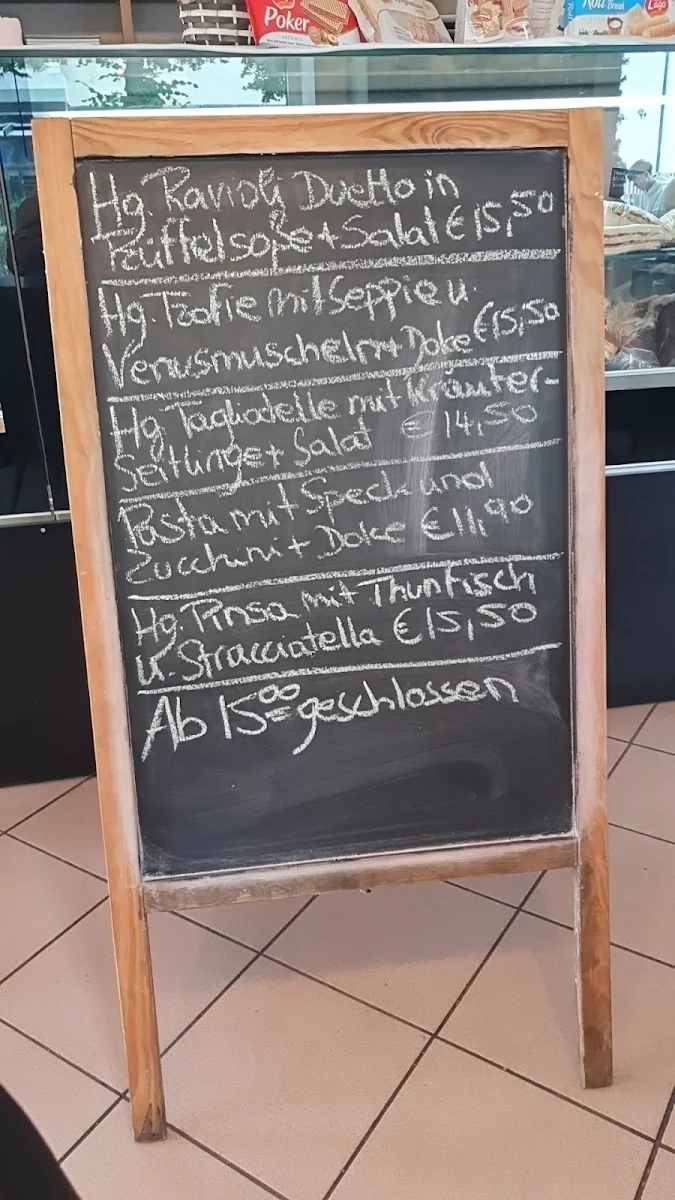 Poker
Roll
Break
Lago
Hg. Ravioli Duetto in
Trüffelsoße + Salat € 15,50
Hg. Trofie mit Seppie u.
Venusmuscheln + Dolce € 15,50
Hg. Tagliatelle mit Kräuter-
Seitlinge + Salat € 14,50
Pasta mit Speck und
Zucchini + Dolce € 11,90
Hg. Pinsa mit Thunfisch
u. Stracciatella € 15,50
Ab 15 00 geschlossen